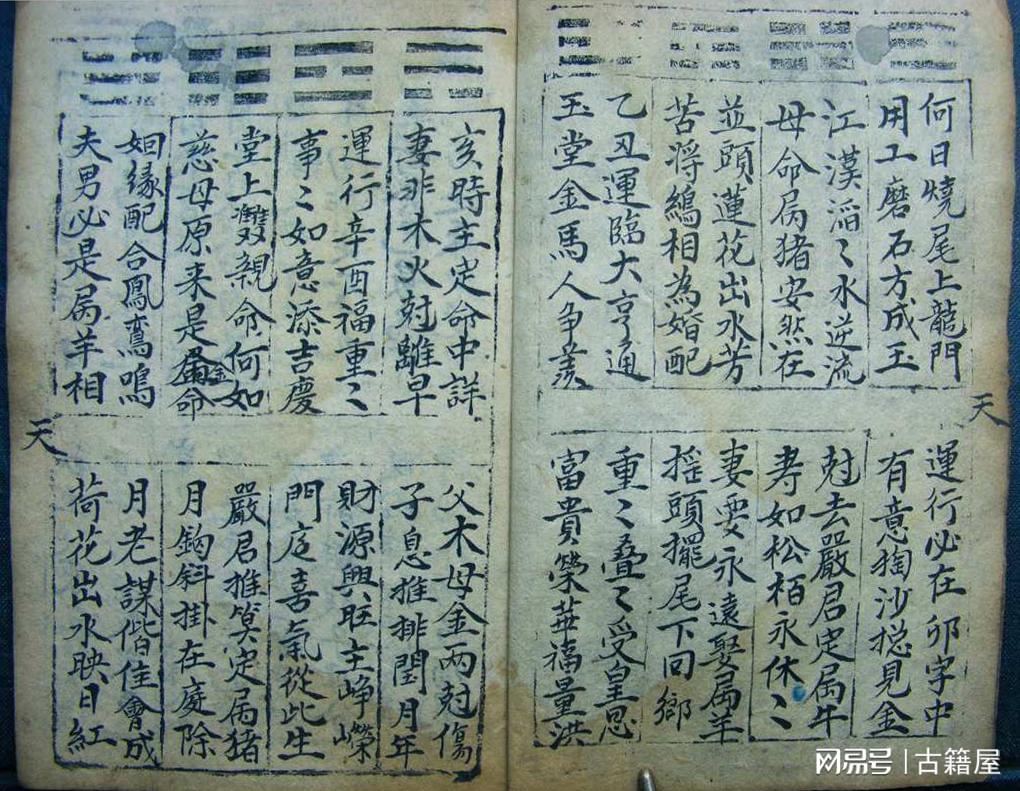 何日燒尾上龍門
運行必在卯字中
用工磨石方成玉
有意掏沙揔見金
江漢滔〻水逆流
尅去嚴君定属牛
母命属猪安然在
寿如松栢永休〻
並頭蓮花出水芳
妻要永遠娶属羊
苦将鵷相為婚配
揺頭擺尾下回鄉
乙丑運臨大亨通
重〻叠〻受皇恩
玉堂金馬人争羨
富貴榮華福量洪
天
亥時主定命中詳
父木母金兩尅傷
妻非木火尅雖早
子息推排閏月年
運行辛酉福重〻
財源興旺主崢嶸
事〻如意添吉慶
門庭喜氣從此生
堂上雙親命何如
嚴君推算定属猪
慈母原来是属金命
月鈎斜掛在庭除
姻缘配合鳳鸞鳴
月老謀偕佳會成
夫男必是属羊相
荷花出水映日紅
天
网易号 | 古籍屋